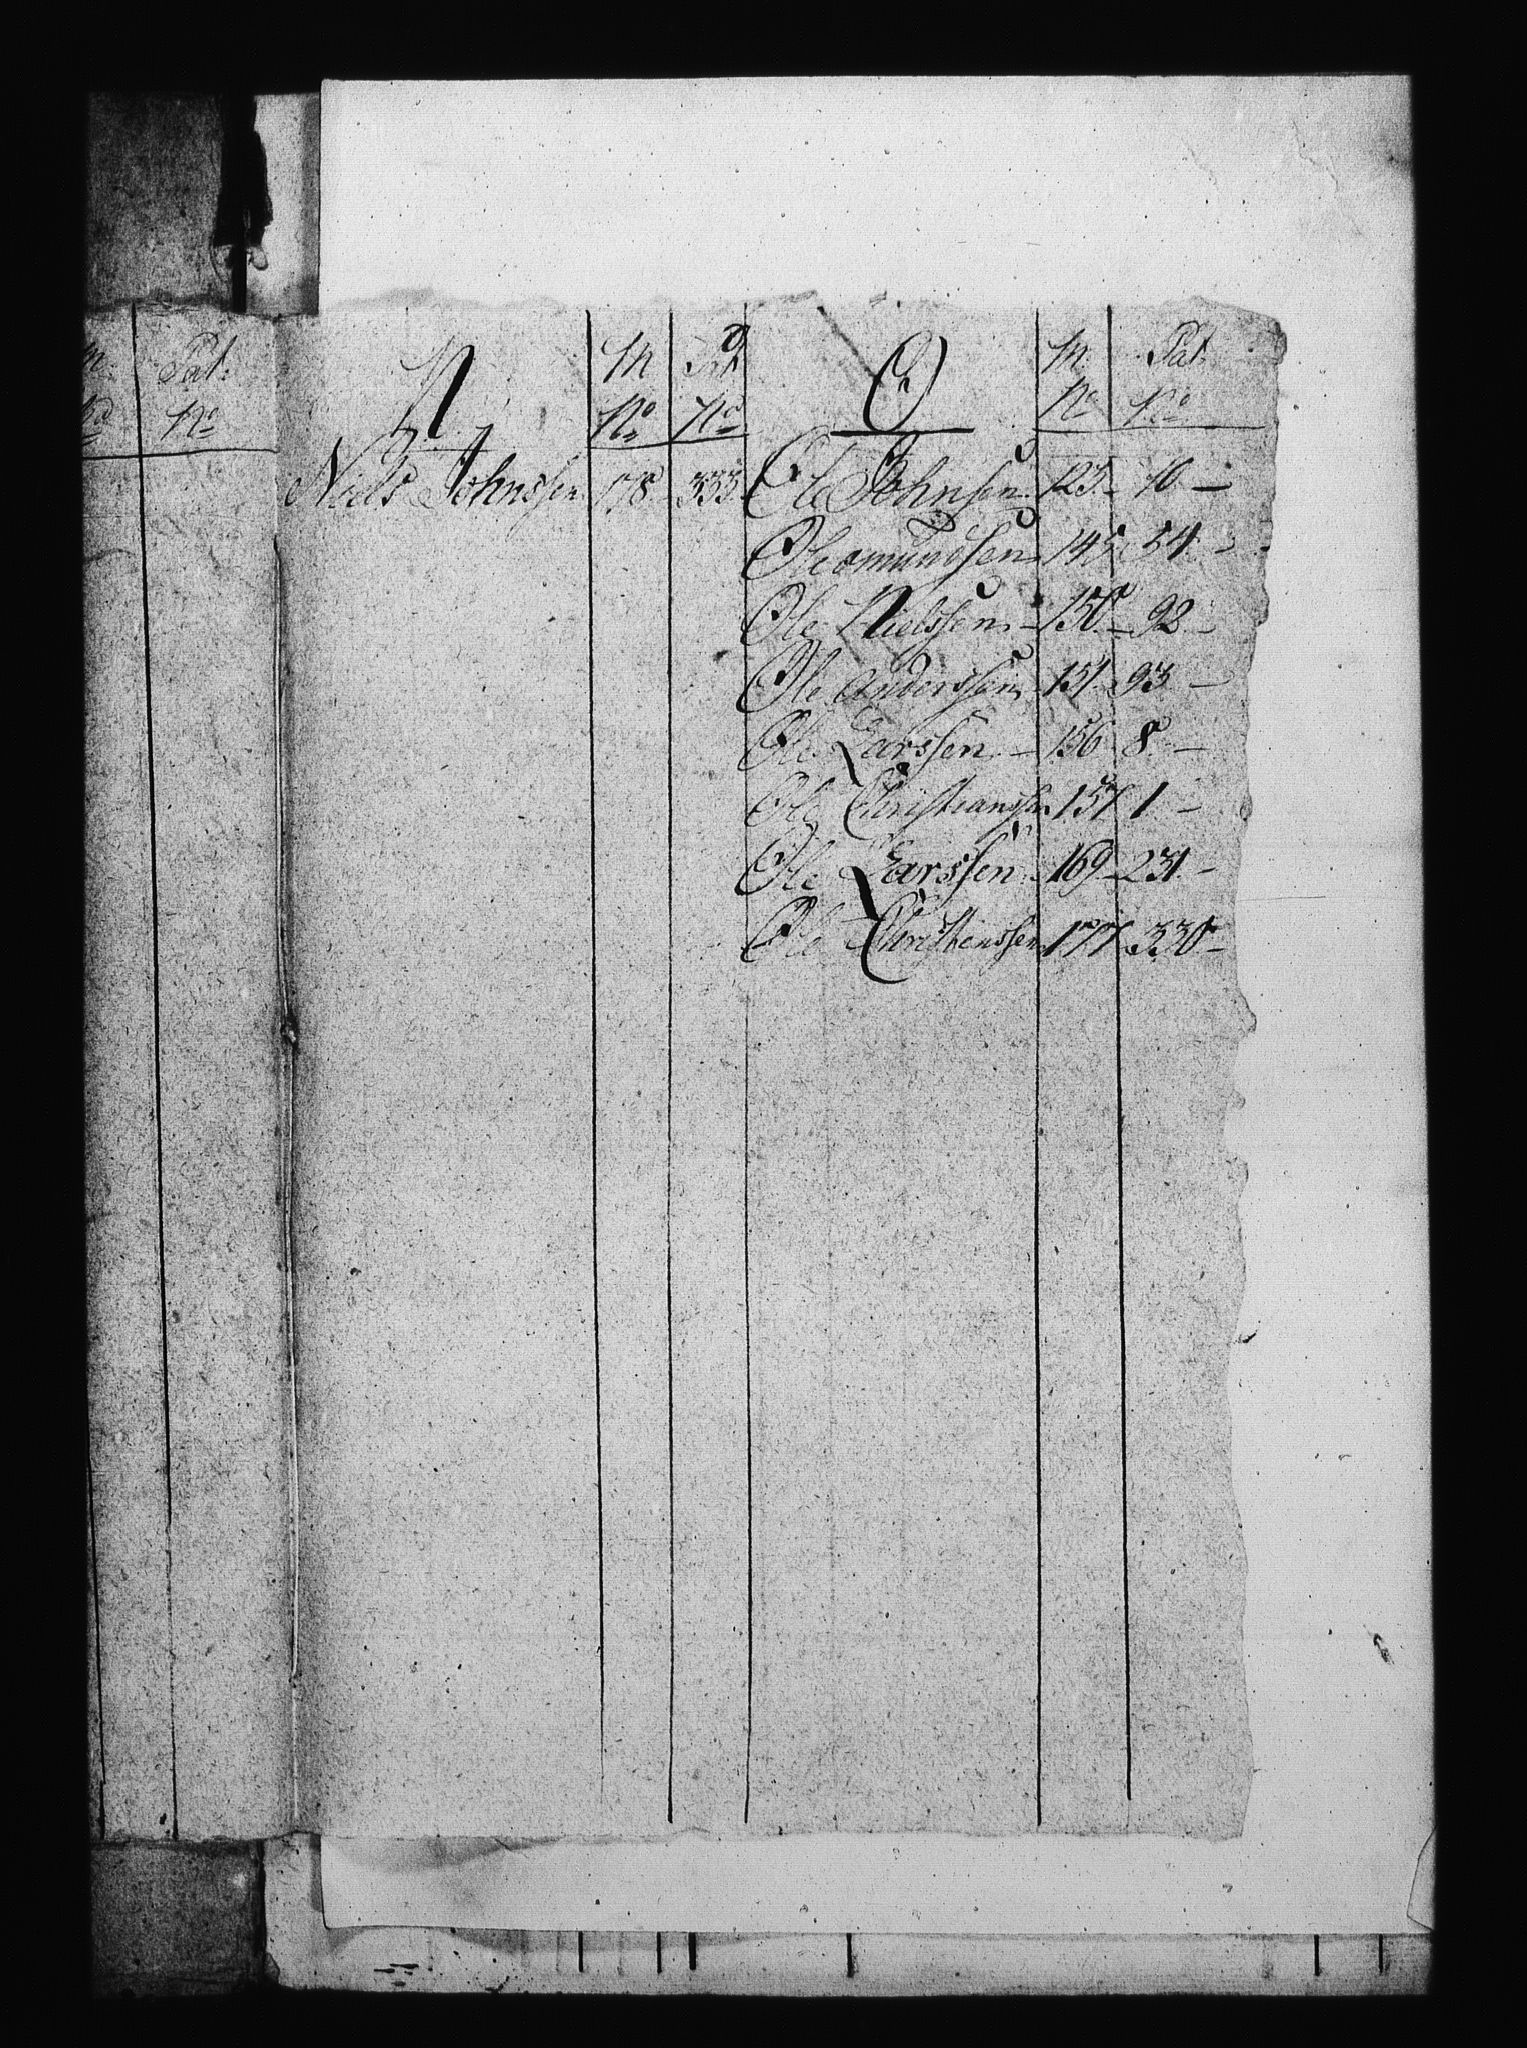 M Pat:
No No
N M Pat O M Pat:
No No No No
Niels Johnssen 178 333 Ole Johnsen 123 - 10 -
Ole Amundsen 145 54 -
Ole Nielssen - 150 - 92 -
Ole Anderssen 151 93 -
Ole Larssen - 156 8 -
Ole Christianssen 157 1 -
Ole Larssen 169 - 231 -
Ole Christenssen 177 - 330 -